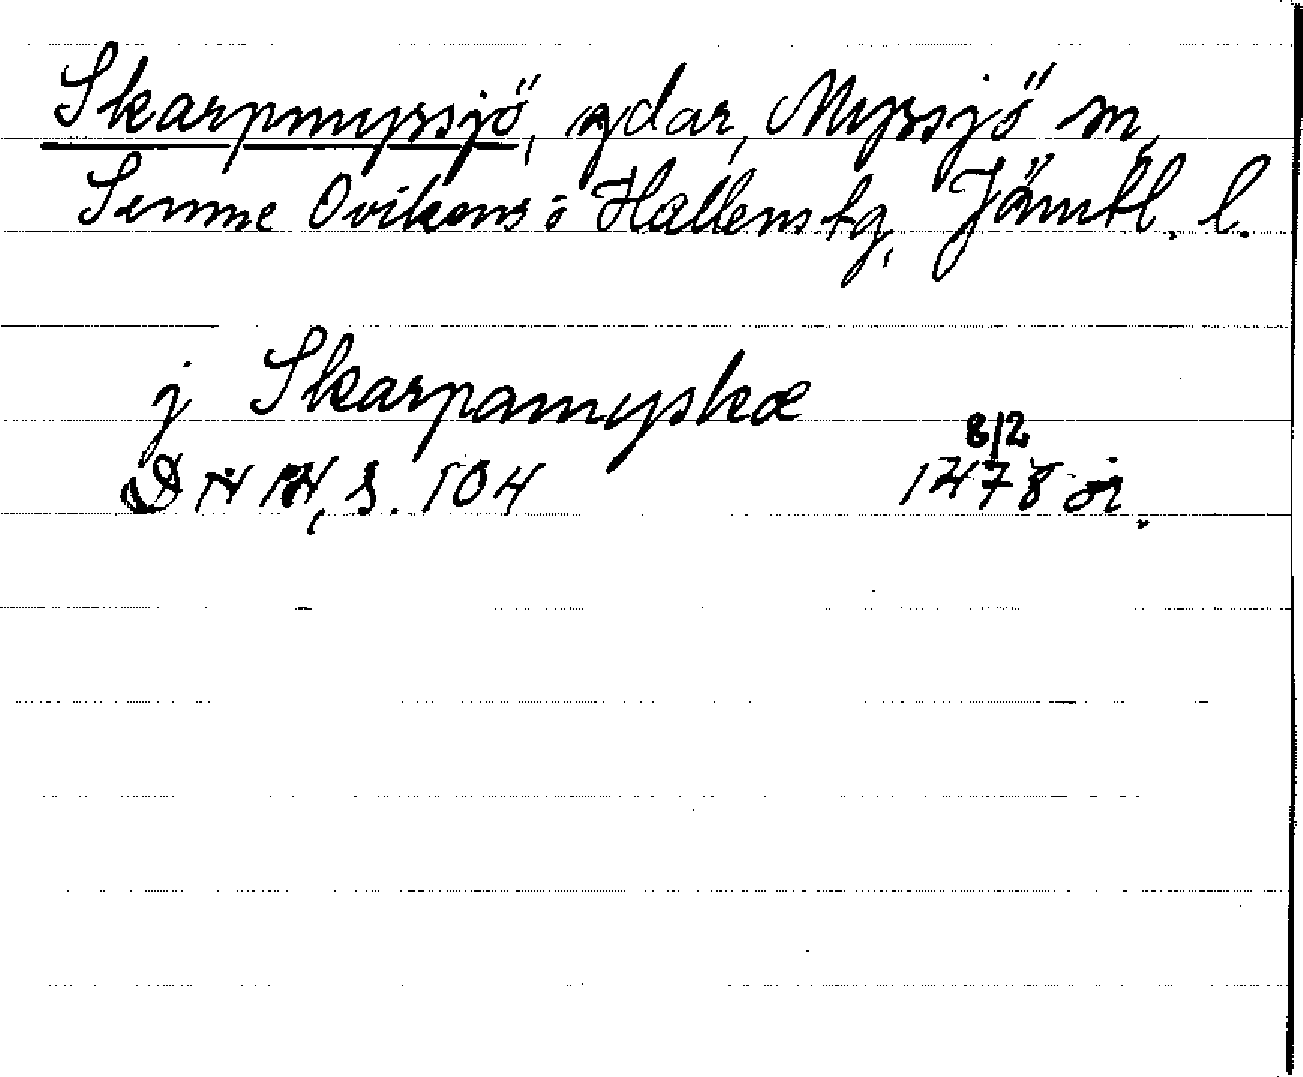 Skarpmyrsjö, gdar, Myrsjö sn,
Sunne Ovikens o Hallens tg, Jämtl. l.
j Skarpamyskæ
DN 14, s. 104 8/2 1478 or.